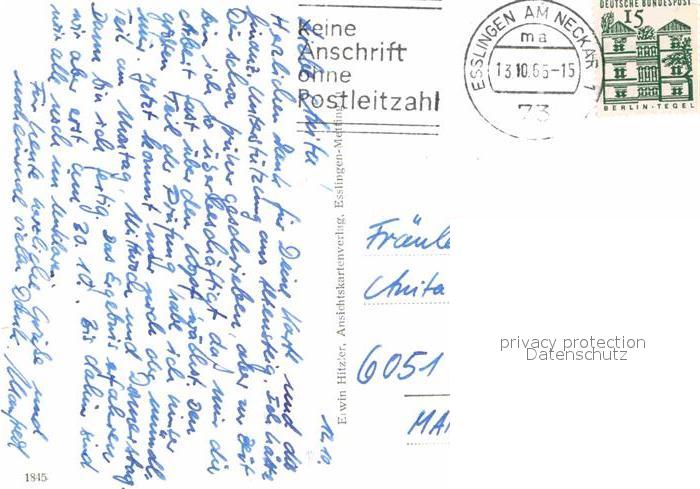 Keine
Anschrift
ohne
Postleitzahl
ESSLINGEN AM NECKAR 1
ma
13.10.65-15
73
DEUTSCHE BUNDESPOST
15
BERLIN-TEGEL
12.10.
Anita!
Herzlichen Dank für Deine Karte und die
Unterstützung aus Ich hätte
Dir schon früher geschrieben, aber zur Zeit
bin ich so überbeschäftigt, daß mir die
Arbeit fast über den Kopf wächst. Den
großen Teil der Prüfung habe ich hinter
mir. Jetzt kommt nur noch der mündl.
Teil am Montag, Mittwoch und Donnerstag.
Dann bin ich fertig. Das Ergebnis erfahren
wir aber erst am 20.10. Bis dahin sind
wir alle noch im
Für heute herzliche Grüße und
nocheinmal vielen Dank. Manfred
Erwin Hitzler, Ansichtskartenverlag, Esslingen-Mettingen
Fräule
Anita
6051
MA
privacy protection
Datenschutz
1845